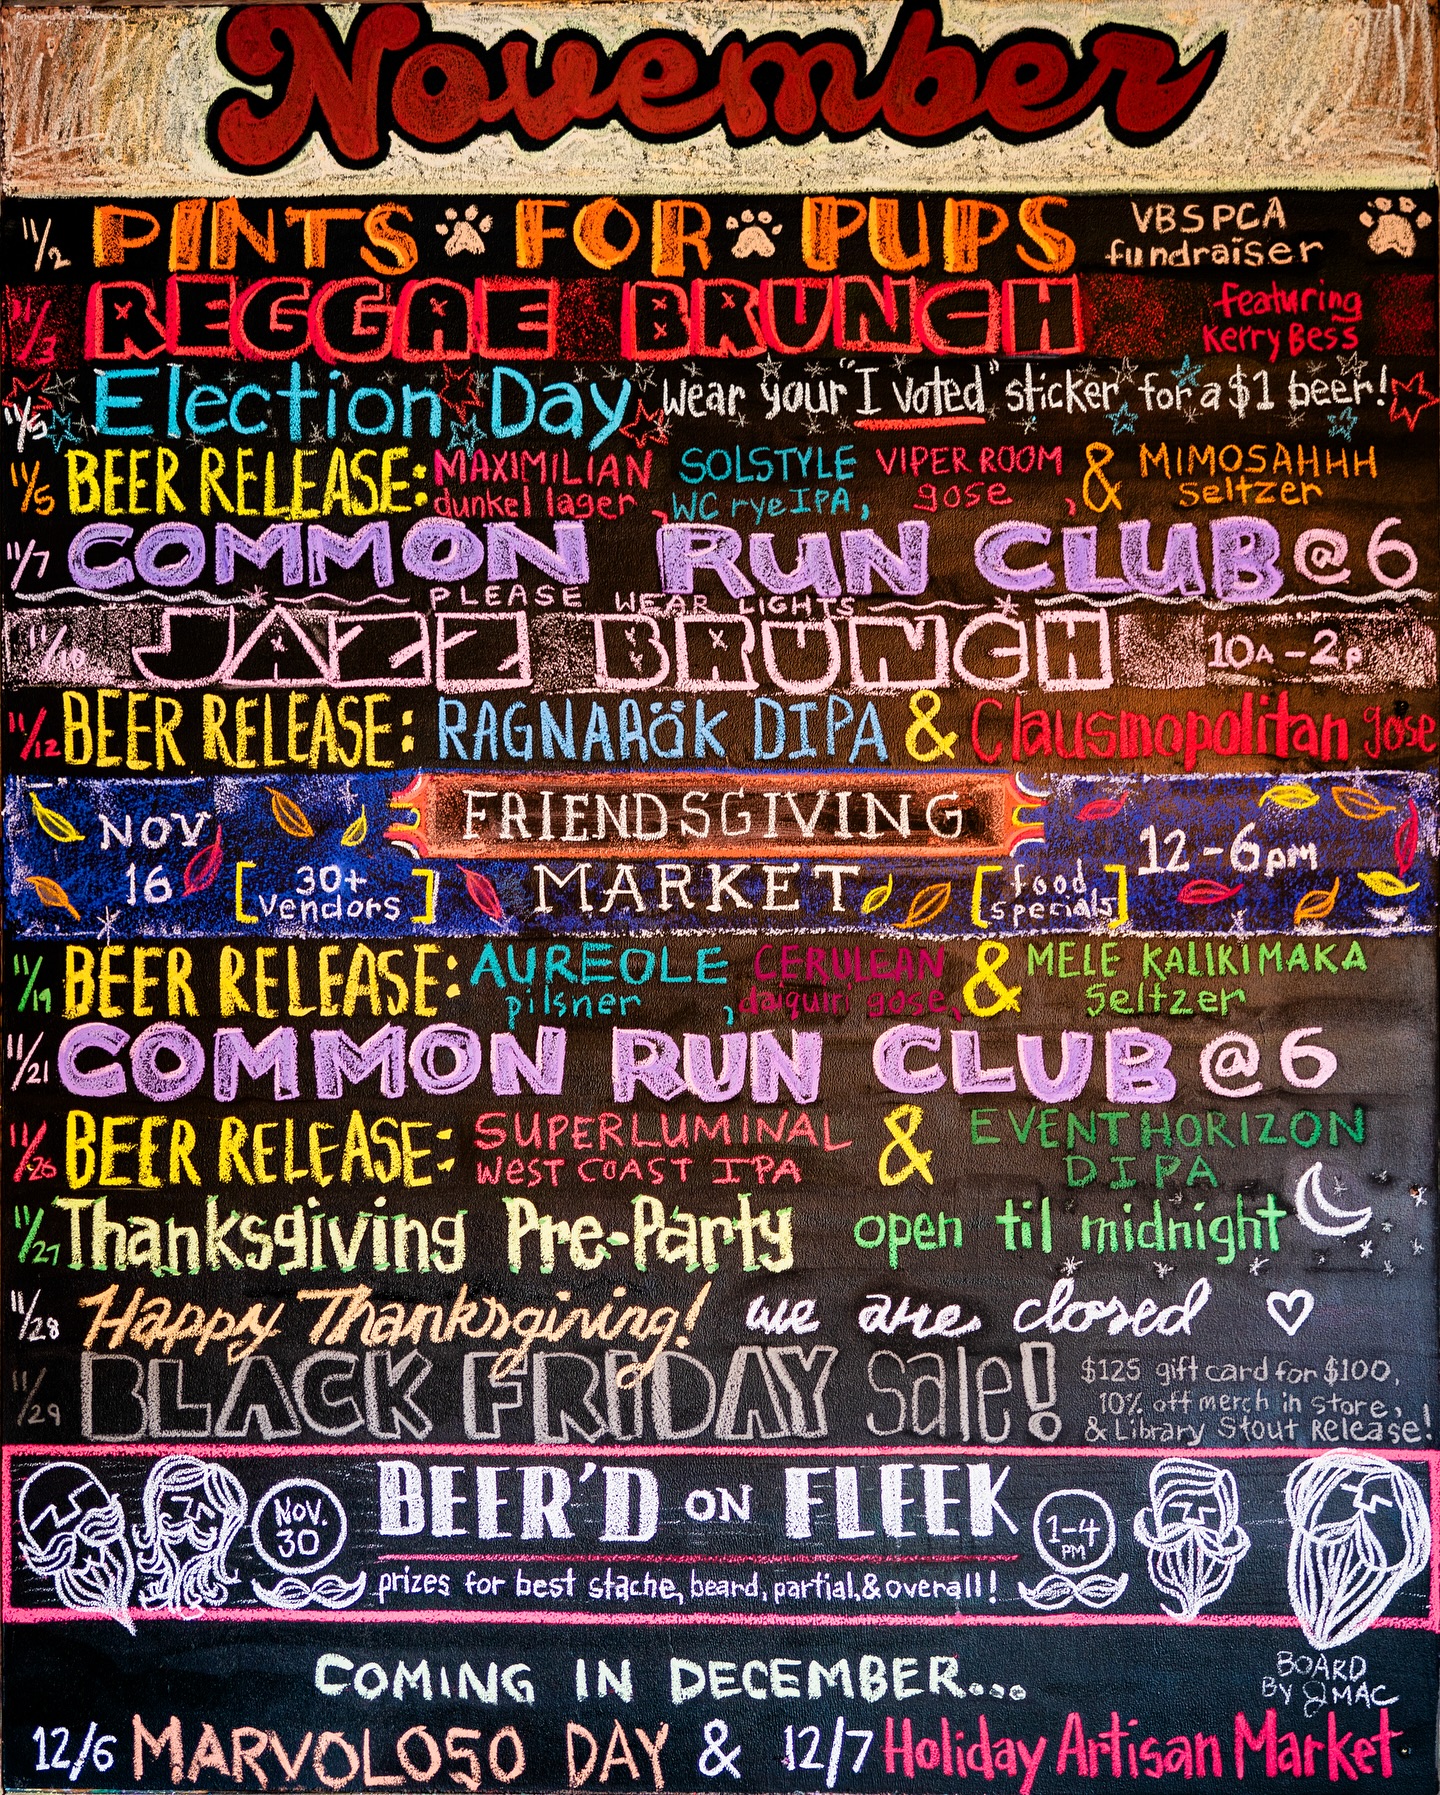 November
11/2 PINTS FOR PUPS VBSPCA fundraiser
11/3 REGGAE BRUNCH featuring Kerry Bess
11/5 Election Day wear your "I voted" sticker for a $1 beer!
11/5 BEER RELEASE: MAXIMILIAN dunkel lager, SOLSTYLE WC rye IPA, VIPER ROOM gose, & MIMOSAHHH Seltzer
11/7 COMMON RUN CLUB @ 6
PLEASE WEAR LIGHTS
11/10 JAZZ BRUNCH 10A-2P
11/12 BEER RELEASE: RAGNARÖK DIPA & Clausmopolitan gose
NOV 16 [30+ vendors] FRIENDSGIVING MARKET [food specials] 12-6pm
11/19 BEER RELEASE: AUREOLE pilsner, CERULEAN daiquiri gose, & MELE KALIKIMAKA Seltzer
11/21 COMMON RUN CLUB @ 6
11/26 BEER RELEASE: SUPERLUMINAL WEST COAST IPA & EVENT HORIZON DIPA
11/27 Thanksgiving Pre-Party open til midnight
11/28 Happy Thanksgiving! we are closed
11/29 BLACK FRIDAY sale! $125 gift card for $100,
10% off merch in store,
& Library Stout Release!
NOV. 30 BEER'D ON FLEEK 1-4 PM
prizes for best stache, beard, partial, & overall!
COMING IN DECEMBER...
BOARD BY JMAC
12/6 MARVOLOSO DAY & 12/7 Holiday Artisan Market